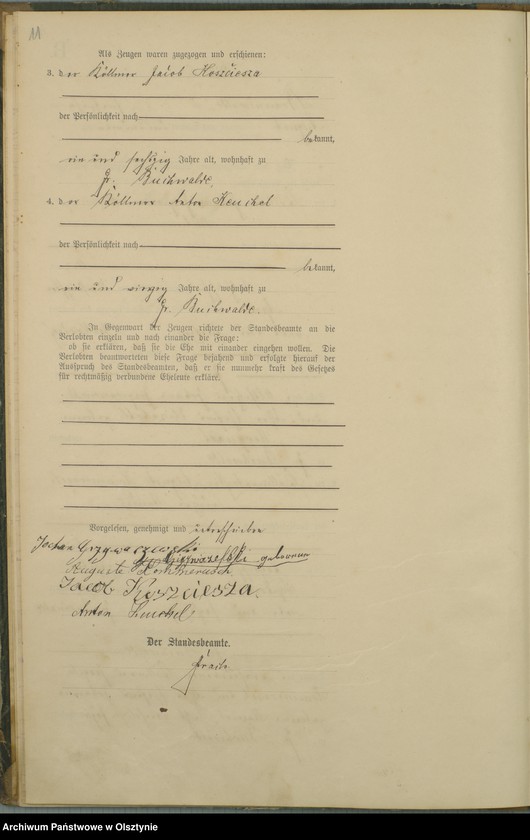 11
Als Zeugen waren zugezogen und erschienen:
3. der Köllmer Jacob
der Persönlichkeit nach
bekannt,
ein und sechszig Jahre alt, wohnhaft zu
Gr. Buchwalde.
4. der Köllmer Anton
der Persönlichkeit nach
bekannt,
ein und vierzig Jahre alt, wohnhaft zu
Gr. Buchwalde.
In Gegenwart der Zeugen richtete der Standesbeamte an die
Verlobten einzeln und nach einander die Frage:
ob sie erklären, daß sie die Ehe mit einander eingehen wollen. Die
Verlobten beantworteten diese Frage bejahend und erfolgte hierauf der
Ausspruch des Standesbeamten, daß er sie nunmehr kraft des Gesetzes
für rechtmäßig verbundene Eheleute erkläre.
Vorgelesen, genehmigt und unterschrieben
geborene
Auguste
Jacob Koszciesza.
Anton
Der Standesbeamte.
Archiwum Państwowe w Olsztynie